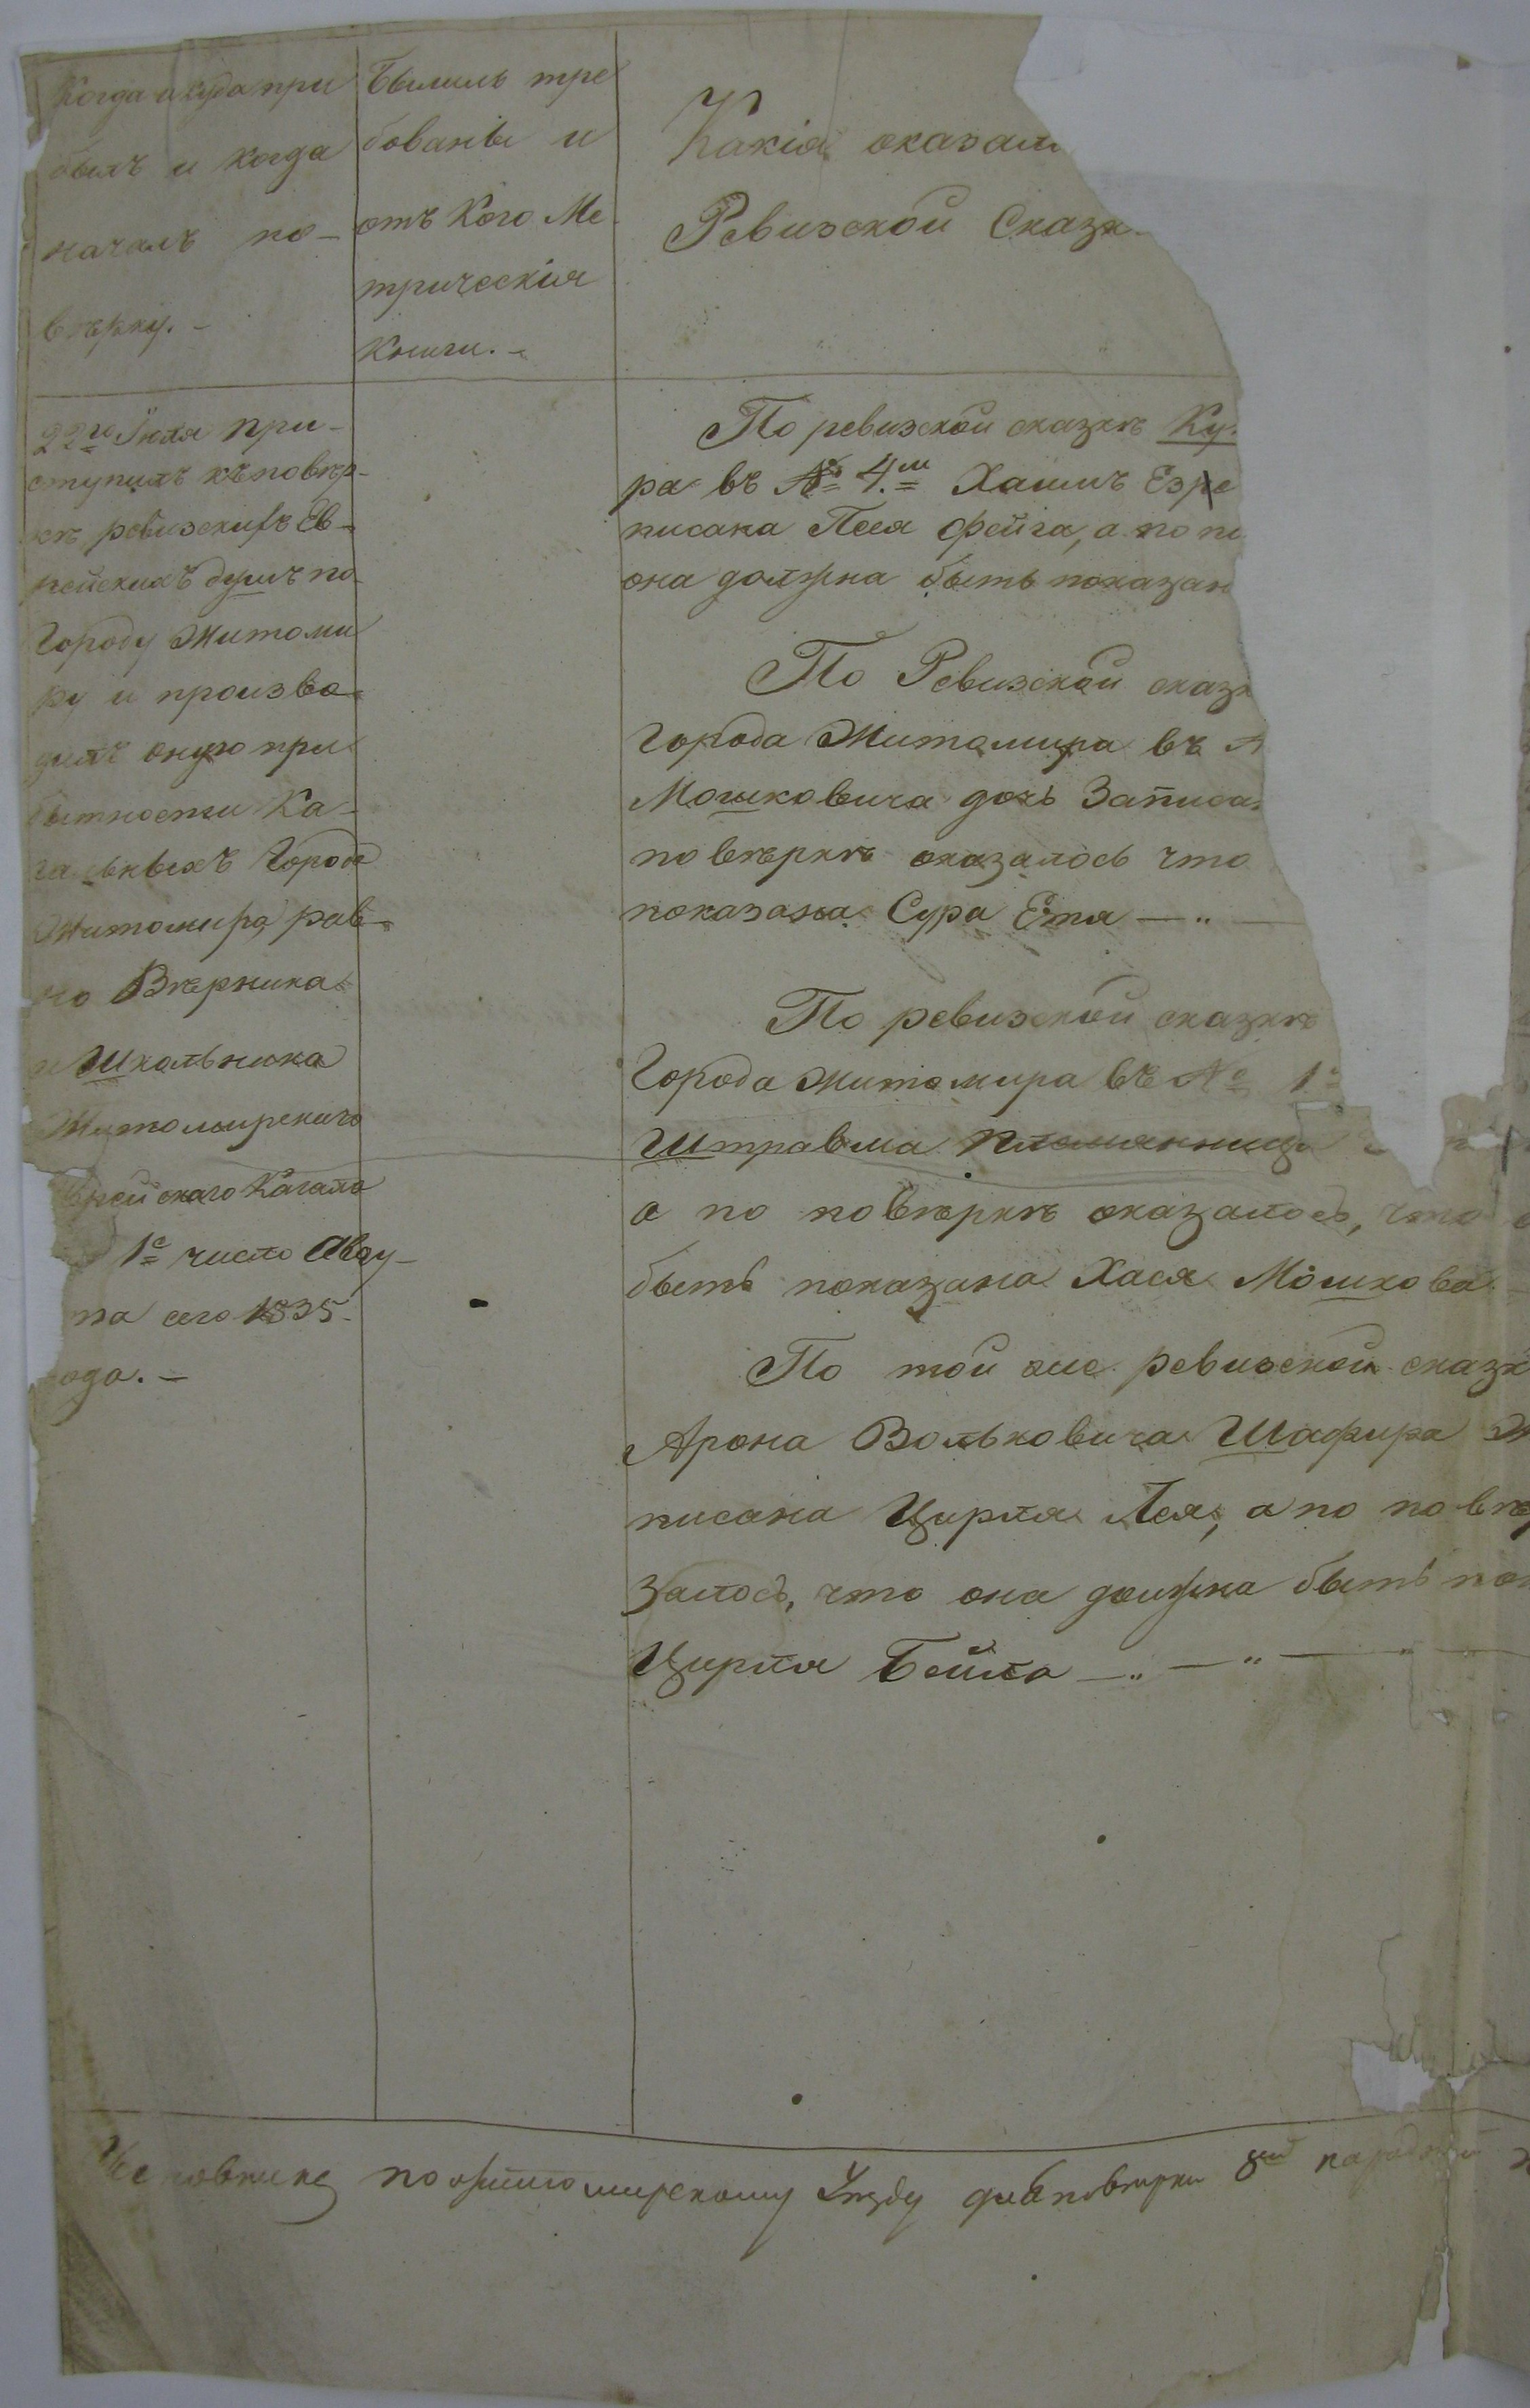 Когда и куда при
былъ и когда
началъ по-
вѣрку. -
Былиль тре
бованы и
отъ Кого Ме
трическія
Книги. -
Какія оказали
Ревизской Сказк
22го Іюля при-
ступилъ къ повѣр-
кѣ ревизскихъ Ев-
рейскихъ душъ по
Городу Житоми
ру и произво-
дилъ оную при
бытности Ка-
гальныхъ Города
Житомира, рав-
но Вѣрника
и Школьника
Житомирскаго
Еврейскаго Кагала
1е число Авгу-
та сего 1835-
года. -
По ревизской сказкѣ Ку
ра въ № 4.м Хаимъ
писана Песя Фейга, а по по
она должна быть показан
По Ревизской сказк
Города Житомира въ
Мошковича дочь Записа
повѣркѣ оказалось что
показана Сура Етя — „ —
По ревизской сказкѣ
Города Житомира въ № 1
Штравма племянница
а по повѣркѣ оказалось, что
быть показана Хася Мошкова
По той же ревизской сказк
Арона Вольковича Шафира Ж
писана Цирля Лея, а по повѣ
залось, что она должна быть пок
Цирля Бейла — „ — „ — „ —
по Житомирскому Уѣзду для повѣрки 8й народной